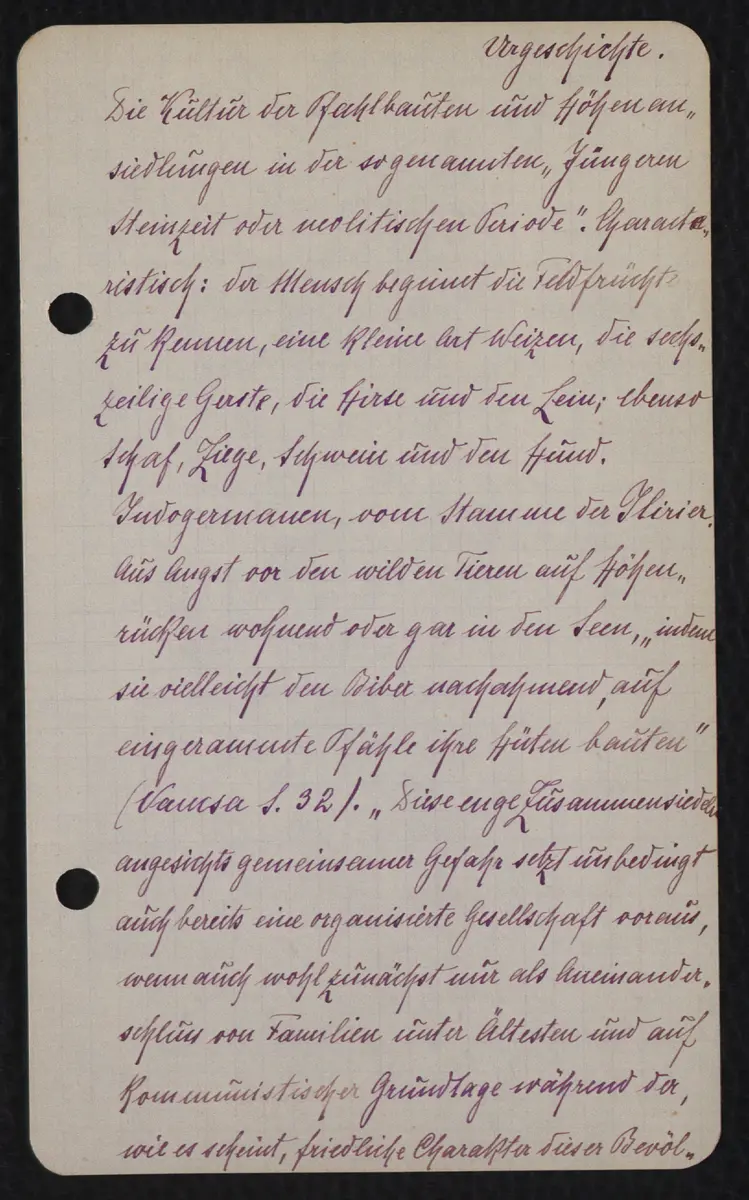 Urgeschichte.
Die Kultur der Pfahlbauten und Höhenan„
siedlungen in der sogenannten „Jüngeren
Steinzeit oder neolitischen Periode". Characte„
ristisch: der Mensch beginnt die Feldfrüchte
zu kennen, eine kleine Art Weizen, die sechs„
zeilige Gerste, die Hirse und den Lein; ebenso
Schaf, Ziege, Schwein und den Hund.
Indogermanen, vom Stamme der Ilirier.
Aus Angst vor den wilden Tieren auf Höhen„
rücken wohnend oder gar in den Seen, „indem
sie vielleicht den Biber nachahmend, auf
eingerammte Pfähle ihre Hüten bauten"
(Vancsa S. 32). „Diese enge Zusammensiedeln
angesichts gemeinsamer Gefahr setzt unbedingt
auch bereits eine organisierte Gesellschaft voraus,
wenn auch wohl zunächst nur als Aneinander„
schluss von Familien unter Ältesten und auf
kommunistischer Grundlage während der,
wie es scheint, friedliche Charakter dieser Bevöl„